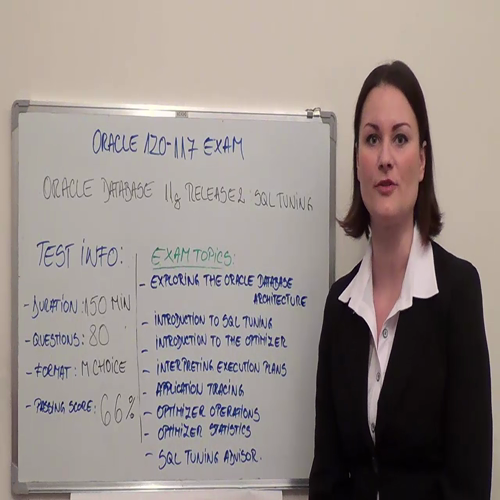 ORACLE 1Z0-117 EXAM
ORACLE DATABASE 11g RELEASE2: SQL TUNING
TEST INFO:
- DURATION: 150 MIN
- QUESTIONS: 80
- FORMAT: M CHOICE
- PASSING SCORE: 66%
EXAM TOPICS:
- EXPLORING THE ORACLE DATABASE
ARCHITECTURE
- INTRODUCTION TO SQL TUNING
- INTRODUCTION TO THE OPTIMIZER
- INTERPRETING EXECUTION PLANS
- APPLICATION TRACING
- OPTIMIZER OPERATIONS
- OPTIMIZER STATISTICS
- SQL TUNING ADVISOR.